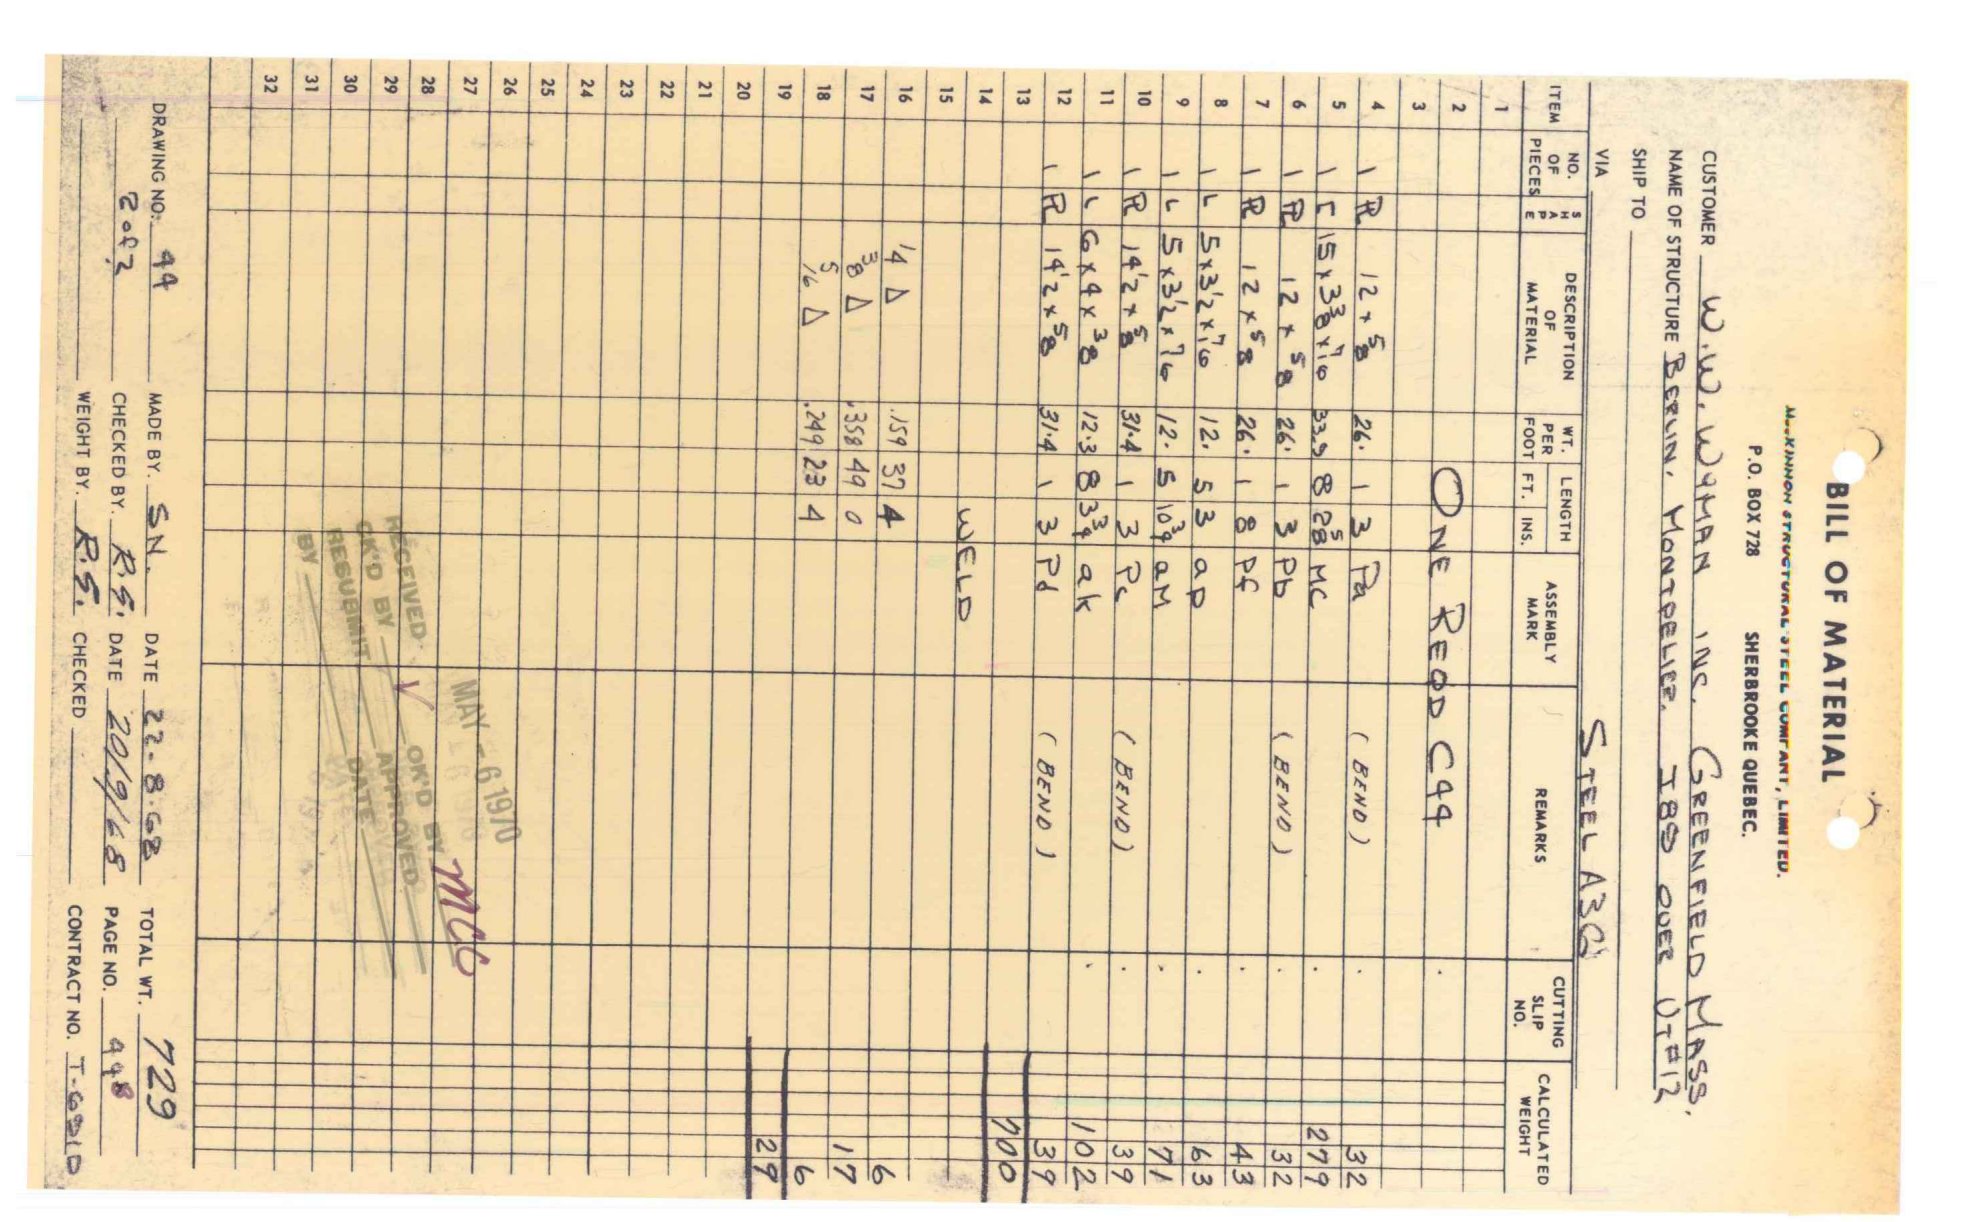 BILL OF MATERIAL
MacKINNON STRUCTURAL STEEL COMPANY, LIMITED.
P.O. BOX 728 SHERBROOKE QUEBEC.
CUSTOMER W.W. WYMAN INC. GREENFIELD MASS.
NAME OF STRUCTURE BERLIN, MONTPELIER. I89 OVER UT#12
SHIP TO
VIA STEEL A36
ITEM NO. OF PIECES SHAPE DESCRIPTION OF MATERIAL WT. PER FOOT LENGTH FT. INS. ASSEMBLY MARK REMARKS CUTTING SLIP NO. CALCULATED WEIGHT
1
2 ONE REQD C44
3
4 1 PL 12 x 5/8 26. 1 3 Pa (BEND) 32
5 1 [ 15 x 3 3/8 x 7/16 33.9 8 2 5/8 MC 279
6 1 PL 12 x 5/8 26. 1 3 Pb (BEND) 32
7 1 PL 12 x 5/8 26. 1 8 Pf 43
8 1 L 5 x 3 1/2 x 7/16 12. 5 3 ap 63
9 1 L 5 x 3 1/2 x 7/16 12. 5 10 3/4 am 71
10 1 PL 14 1/2 x 5/8 31.4 1 3 Pc (BEND) 39
11 1 L 6 x 4 x 3/8 12.3 8 3 3/4 ak 102
12 1 PL 14 1/2 x 5/8 31.4 1 3 Pd (BEND) 39
13 700
14 WELD
15
16 1/4 △ .159 37 4 6
17 3/8 △ .358 49 0 17
18 5/16 △ .249 23 4 6
19 29
20
21
22
23
24
25
26
27
28
29
30
31
32
MAY - 6 1970
RECEIVED
CK'D BY OK'D BY MCC
RESUBMIT APPROVED
BY DATE
DRAWING NO. 44 MADE BY. SN. DATE 22-8-68 TOTAL WT. 729
2 of 2 CHECKED BY. R.S. DATE 20/9/68 PAGE NO. 448
WEIGHT BY. R.S. CHECKED CONTRACT NO. T-6310